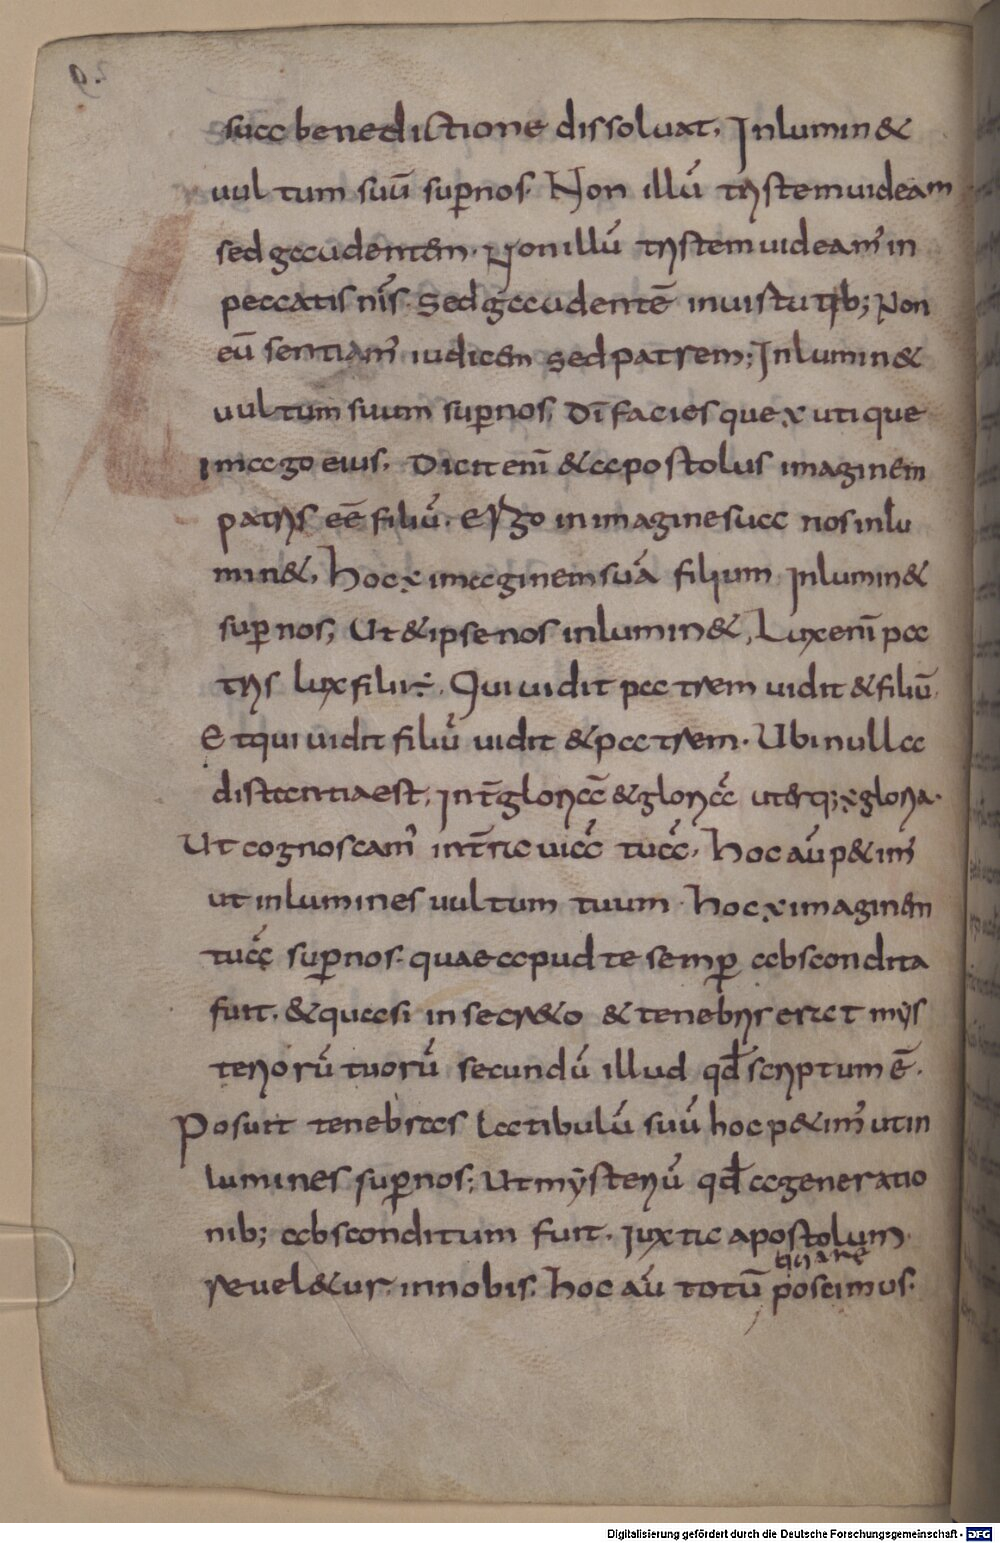 sua benedictione dissoluat. Inlumin&
uultum suū sup̄nos. Non illū tristem uideam
sed gaudentem. Non illū tristem uideam᾽ in
peccatis nr̄is. Sed gaudentē in uirtutib; Non
eū sentiam᾽ iudicem sed patrem; Inlumin&
uultum suum sup̄nos; Dī facies que χ utique
imago eius. Dicit enī & apostolus imaginem
patris eē filiū. Ergo in imagine sua nos inlu
min&, hoc χ imaginem suā filium Inlumin&
sup̄ nos; Ut & ipse nos inlumin&, Lux enī pa
tris lux filii ÷. Qui uidit patrem uidit & filiū.
Et qui uidit filiū uidit & patrem. Ubi nulla
distantia est; int̄ gloriā & gloriā uterq; χ gloria.
Ut cognoscam᾽ in t̄ra uiā tuā. hoc aū p&im᾽
ut inlumines uultum tuum. hoc χ imaginem
tuā sup̄nos. quae apud te semp̄ abscondita
fuit. & quasi in secr&o & tenebris erat mys
teriorū tuorū secundū illud qđ scriptum ē.
Posuit tenebras latibulū suū hoc p&im᾽ ut in
lumines sup̄nos; Ut mẏsteriū qđ a generatio
nib; absconditum fuit. iuxta apostolum
quare
reuel&ur in nobis. hoc aū totū poscimus.
Digitalisierung gefördert durch die Deutsche Forschungsgemeinschaft - DFG